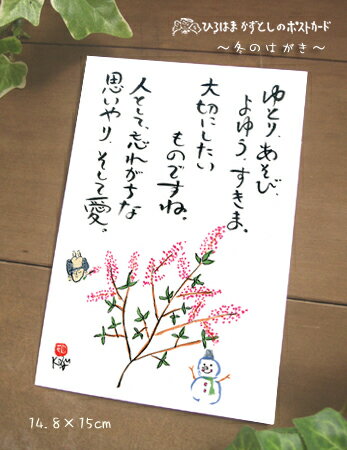 ひろはまかずとしのポストカード
～冬のはがき～
ゆとり、あそび、
よゆう、すきま。
大切にしたい
ものですね。
人として、忘れがちな
思いやり、そして愛。
14.8×15cm